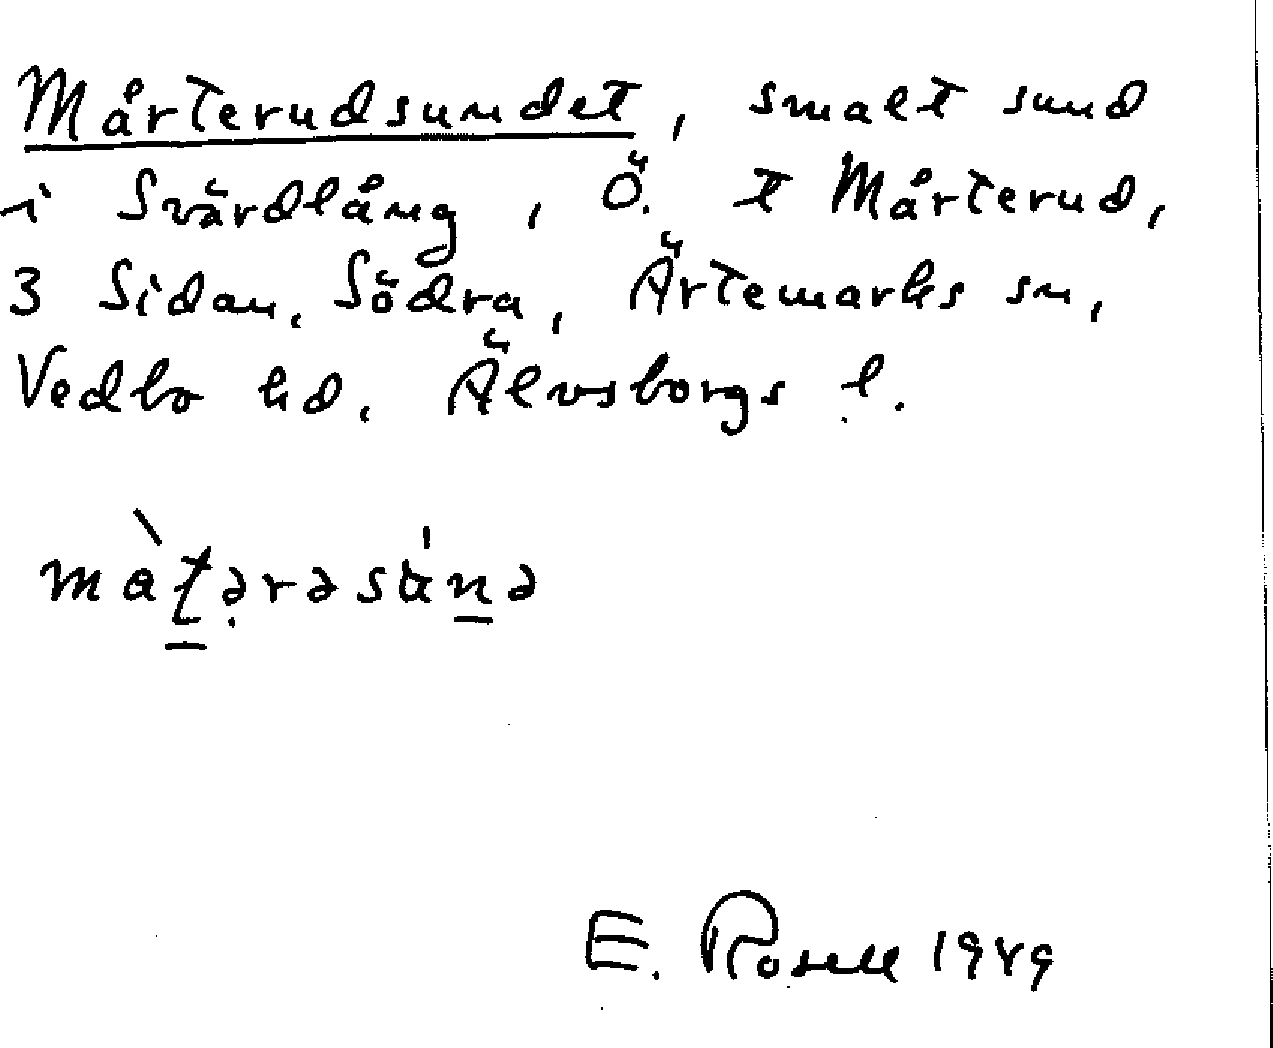 Mårterudsundet, smalt sund
i Svärdlång, Ö. t Mårterud,
3 Sidan, Södra, Ärtemarks sn,
Vedbo hd, Älvsborgs l.
E. Rosell 1949